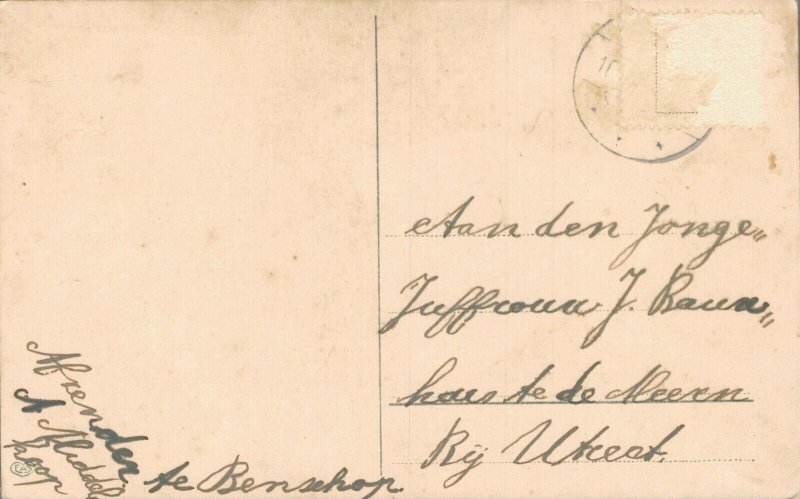 Aan den Jonge„
Juffrouw J. Raven„
hors te de Meern
Bij Utrect.
Afzender
A Middel
koop
te Benschop